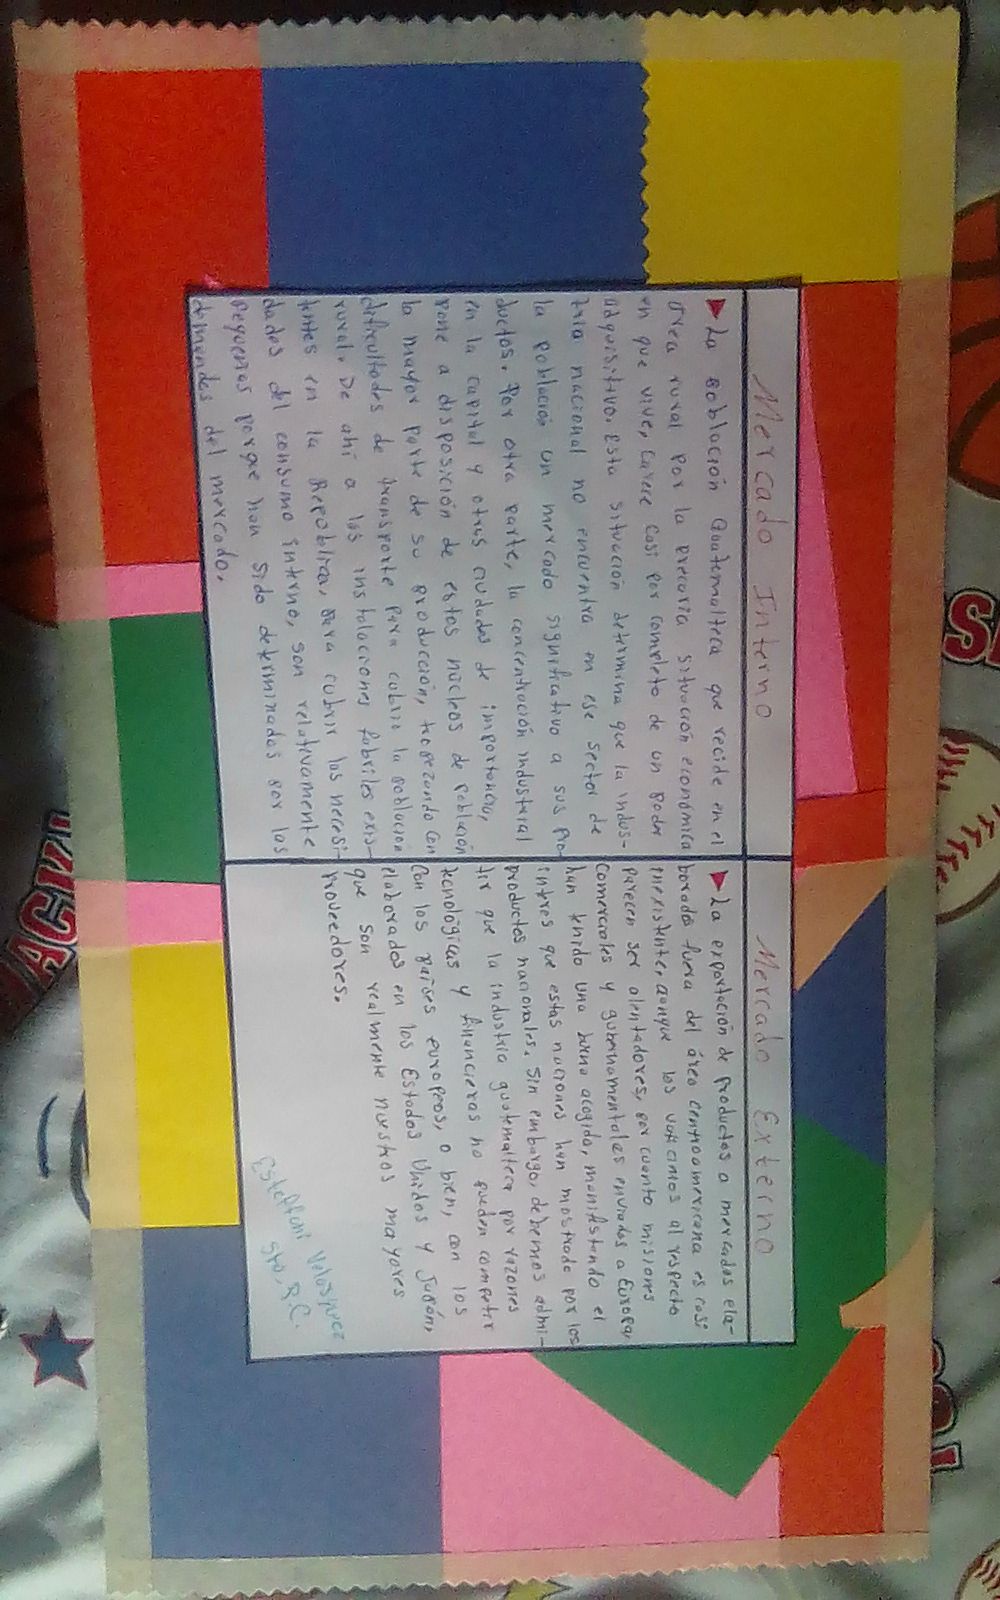 Mercado Interno
La población Guatemalteca que recide en el
área rural por la precaria situación económica
en que vive, carece casi por completo de un poder
adquisitivo. Esta situación determina que la indus-
tria nacional no encuentra en ese sector de
la población un mercado significativo a sus pro-
ductos. Por otra parte, la concentración industrial
en la capital y otras ciudades de importancia,
pone a disposición de estos núcleos de población
la mayor parte de su producción, tropezando con
dificultades de transporte para cubrir la población
rural. De ahí a las instalaciones fabriles exis-
tentes en la República, para cubrir las necesi-
dades del consumo interno, son relativamente
pequeñas porque han sido determinadas por las
demandas del mercado.
Mercado Externo
La exportación de productos a mercados ela-
borados fuera del área centroamericana es casi
inexistente, aunque los vaticinios al respecto
parecen ser alentadores, por cuanto misiones
comerciales y gubernamentales enviadas a Europa,
han tenido una buena acogida, manifestando el
interes que estas naciones han mostrado por los
productos nacionales. Sin embargo, debemos admi-
tir que la industria guatemalteca por razones
tecnológicas y financieras no pueden competir
con los países europeos, o bien, con los
elaborados en los Estados Unidos y Japón,
que son realmente nuestros mayores
proveedores.
Esteffani Velásquez
5to, B.C.